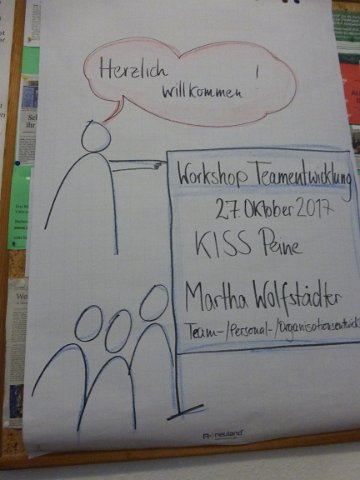 Herzlich
willkommen !
Workshop Teamentwicklung
27. Oktober 2017
KISS Peine
Martha Wolfstädter
Team-/Personal-/Organisationsentwickl
neuland